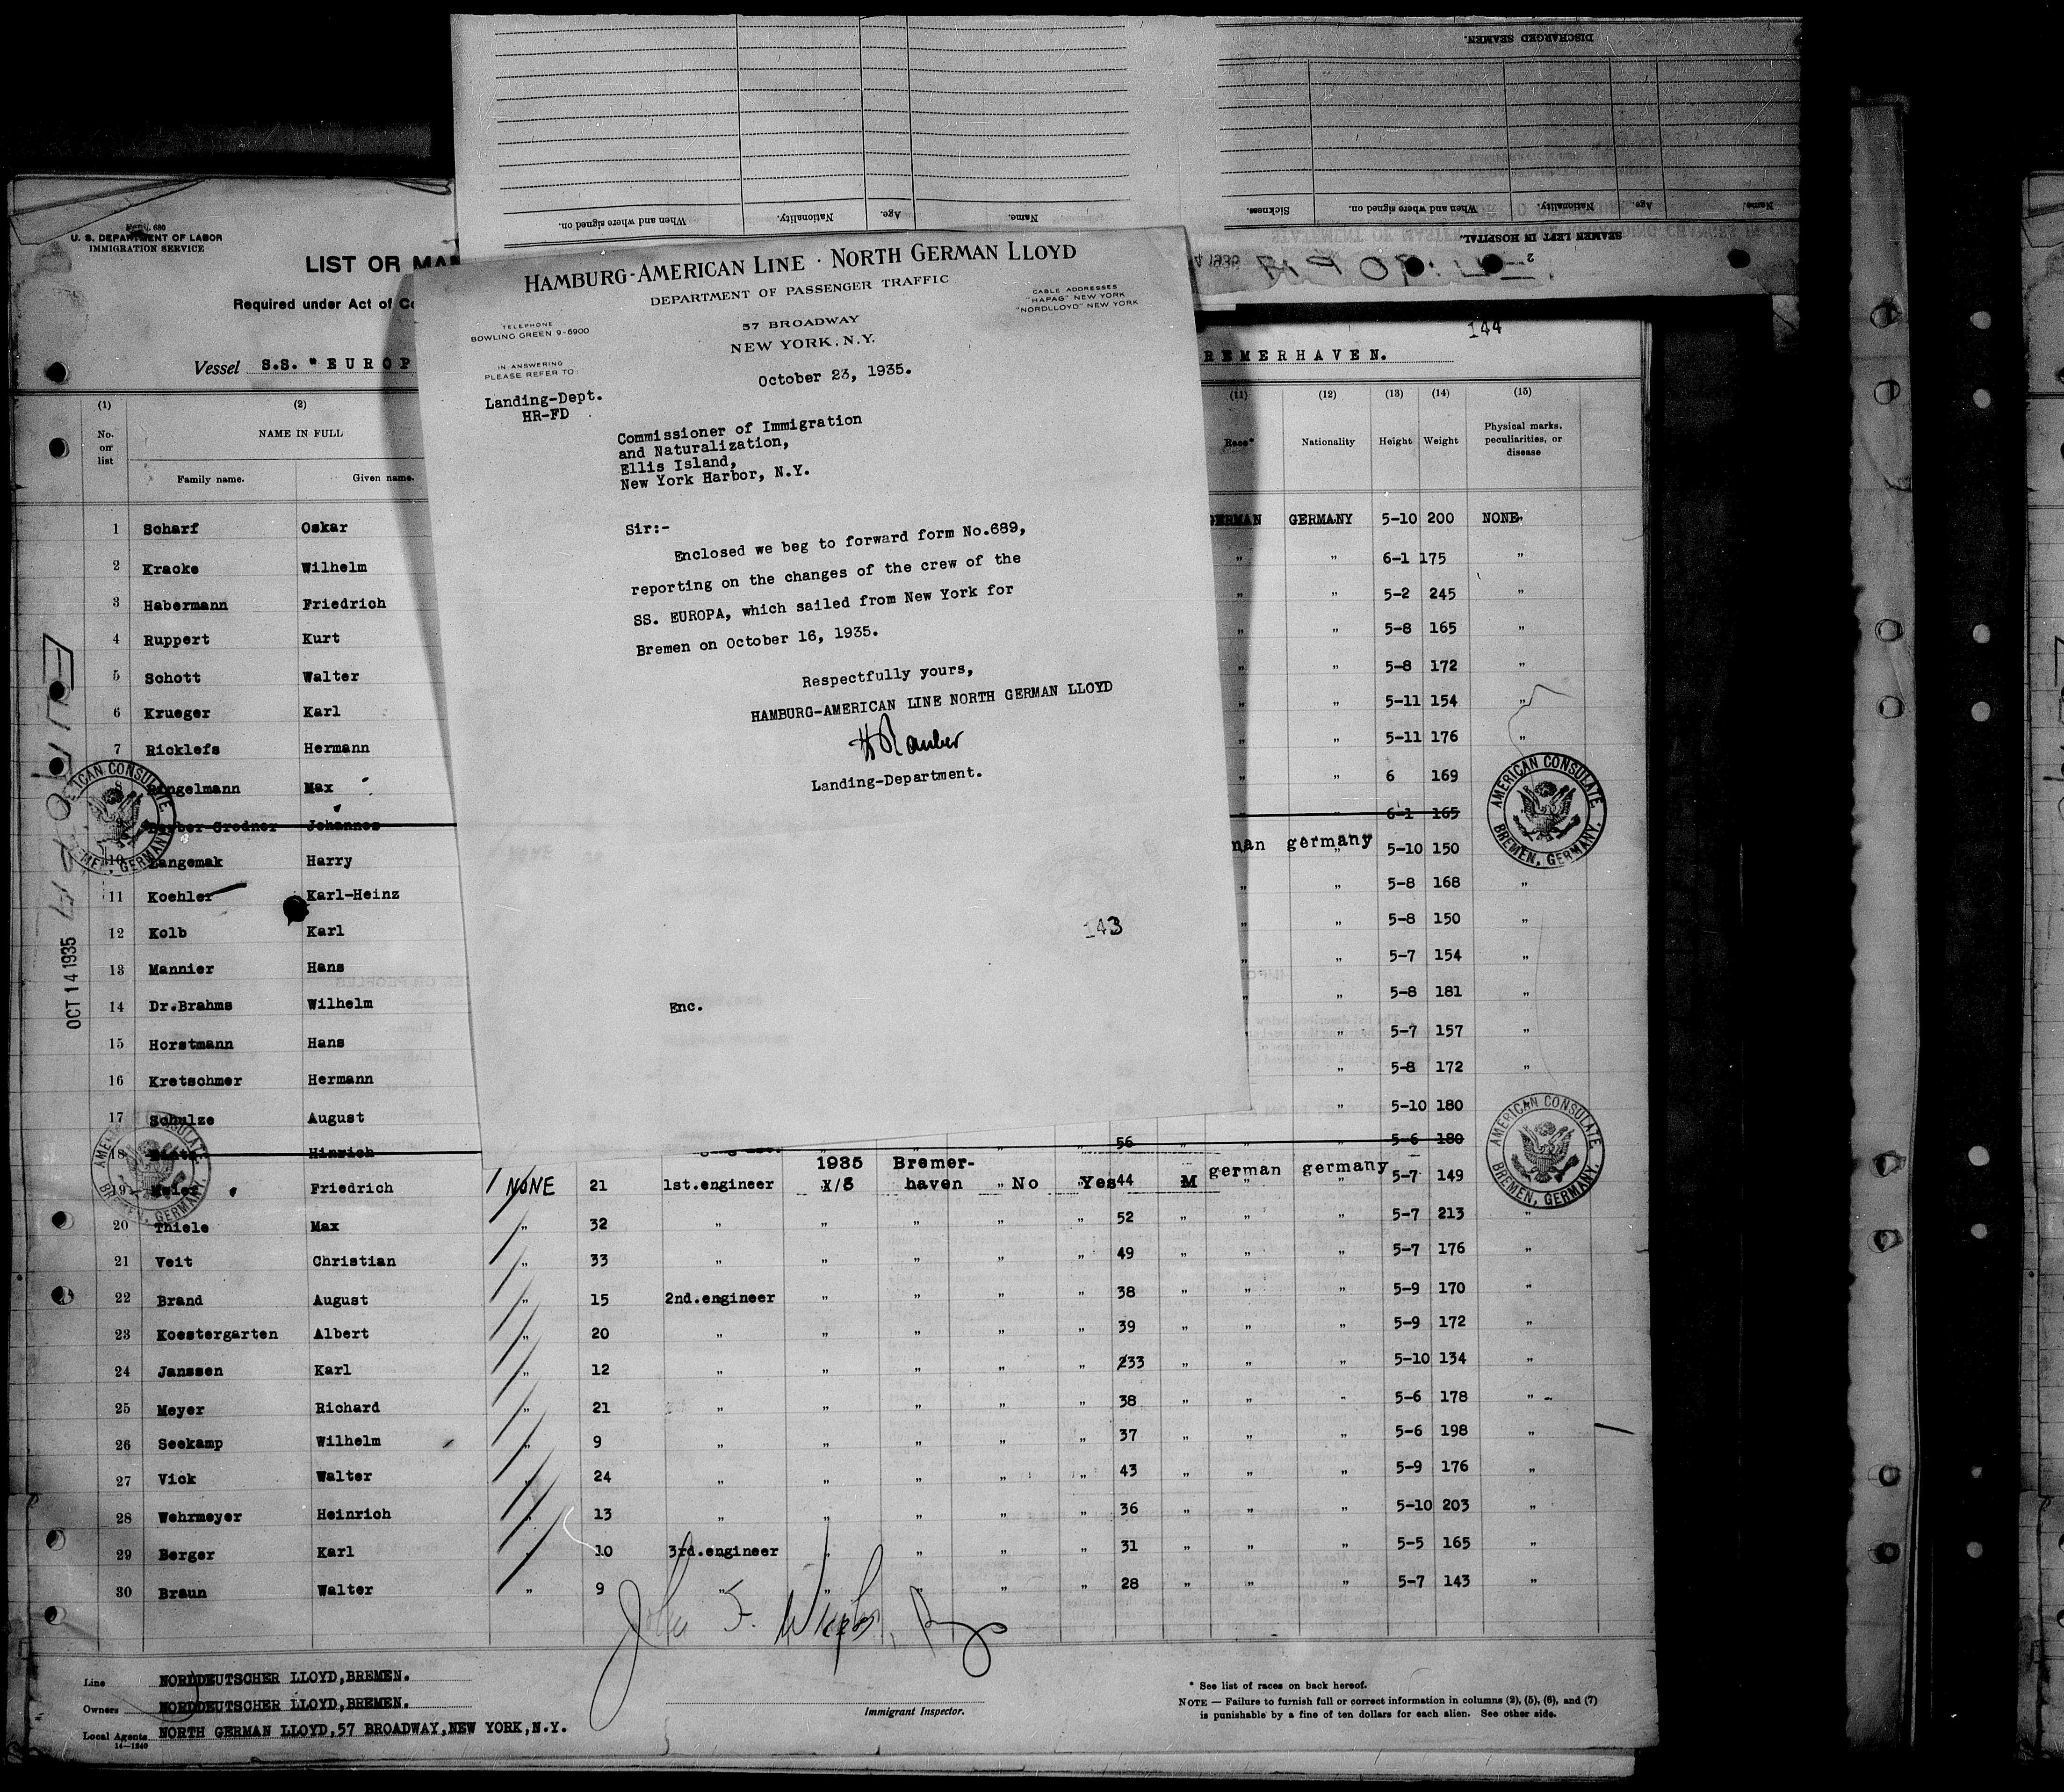 DISCHARGED SEAMEN.
Name. Age. Nationality. When and where signed on.
Name. Age. Nationality. When and where signed on. Sickness.
SEAMEN LEFT IN HOSPITAL.
2
U. S. DEPARTMENT OF LABOR
IMMIGRATION SERVICE
LIST OR
Required under Act of
Vessel S.S. "EUROP
HAMBURG-AMERICAN LINE · NORTH GERMAN LLOYD
DEPARTMENT OF PASSENGER TRAFFIC
CABLE ADDRESSES
"HAPAG" NEW YORK
"NORDLLOYD" NEW YORK
TELEPHONE
BOWLING GREEN 9-6900
57 BROADWAY
NEW YORK, N.Y.
IN ANSWERING
PLEASE REFER TO:
October 23, 1935.
Landing-Dept.
HR-FD
Commissioner of Immigration
and Naturalization,
Ellis Island,
New York Harbor, N.Y.
Sir:-
Enclosed we beg to forward form No.689,
reporting on the changes of the crew of the
SS. EUROPA, which sailed from New York for
Bremen on October 16, 1935.
Respectfully yours,
HAMBURG-AMERICAN LINE NORTH GERMAN LLOYD
Landing-Department.
143
Enc.
144
REMERHAVEN.
(1) (2) (11) (12) (13) (14) (15)
No. on list NAME IN FULL Race* Nationality Height Weight Physical marks, peculiarities, or disease
Family name. Given name.
1 Scharf Oskar GERMAN GERMANY 5-10 200 NONE
2 Kracke Wilhelm " 6-1 175 "
3 Habermann Friedrich " " 5-2 245 "
4 Ruppert Kurt " " 5-8 165 "
5 Schott Walter " " 5-8 172 "
6 Krueger Karl " " 5-11 154 "
7 Ricklefs Hermann " " 5-11 176 "
8 Ringelmann Max " " 6 169
Johannes 6-1 165
10 Langemak Harry man germany 5-10 150
11 Koehler Karl-Heinz " " 5-8 168 "
12 Kolb Karl " " 5-8 150 "
13 Mannier Hans " " 5-7 154 "
14 Dr.Brahms Wilhelm " " 5-8 181 "
15 Horstmann Hans " 5-7 157 "
16 Kretschmer Hermann " 5-8 172 "
17 Schulze August " 5-10 180
18 Hinrich " " 56 " " " 5-6 180
19 Meier Friedrich NONE 21 1st.engineer 1935 X/8 Bremerhaven No Yes 44 M german germany 5-7 149
20 Thiele Max " 32 " " " " " 52 " " " 5-7 213 "
21 Veit Christian " 33 " " " " " 49 " " " 5-7 176 "
22 Brand August " 15 2nd.engineer " " " " 38 " " " 5-9 170 "
23 Koestergarten Albert " 20 " " " " " 39 " " " 5-9 172 "
24 Janssen Karl " 12 " " " " " 233 " " " 5-10 134 "
25 Meyer Richard " 21 " " " " " 38 " " " 5-6 178 "
26 Seekamp Wilhelm " 9 " " " " " 37 " " " 5-6 198 "
27 Vick Walter " 24 " " " " " 43 " " " 5-9 176 "
28 Wehrmeyer Heinrich " 13 " " " " " 36 " " " 5-10 203 "
29 Berger Karl " 10 3rd.engineer " " " " 31 " " " 5-5 165 "
30 Braun Walter " 9 " " " " " 28 " " " 5-7 143 "
OCT 14 1935
AMERICAN CONSULATE BREMEN, GERMANY.
AMERICAN CONSULATE BREMEN, GERMANY.
AMERICAN CONSULATE BREMEN, GERMANY.
AMERICAN CONSULATE BREMEN, GERMANY.
Line NORDDEUTSCHER LLOYD,BREMEN.
Owners NORDDEUTSCHER LLOYD,BREMEN.
Local Agents NORTH GERMAN LLOYD,57 BROADWAY,NEW YORK,N.Y.
14—1240
Immigrant Inspector.
* See list of races on back hereof.
NOTE — Failure to furnish full or correct information in columns (2), (5), (6), and (7)
is punishable by a fine of ten dollars for each alien. See other side.